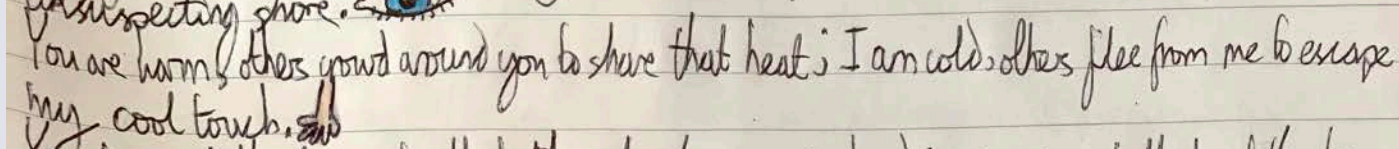 unsuspecting shore.
You are warm, others crowd around you to share that heat; I am cold, others flee from me to escape
my cool touch.